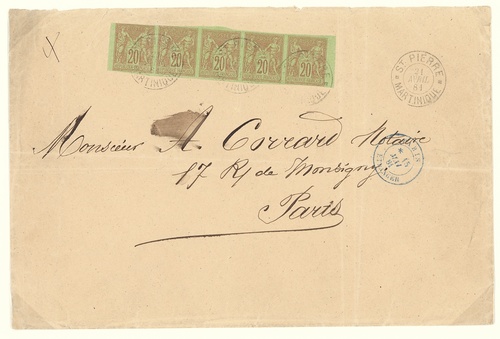 20 20 20 20 20
MARTINIQUE
ST PIERRE
21
AVRIL
81
MARTINIQUE
Monsieur A Corrard Notaire
17 R. de Monsigny
Paris